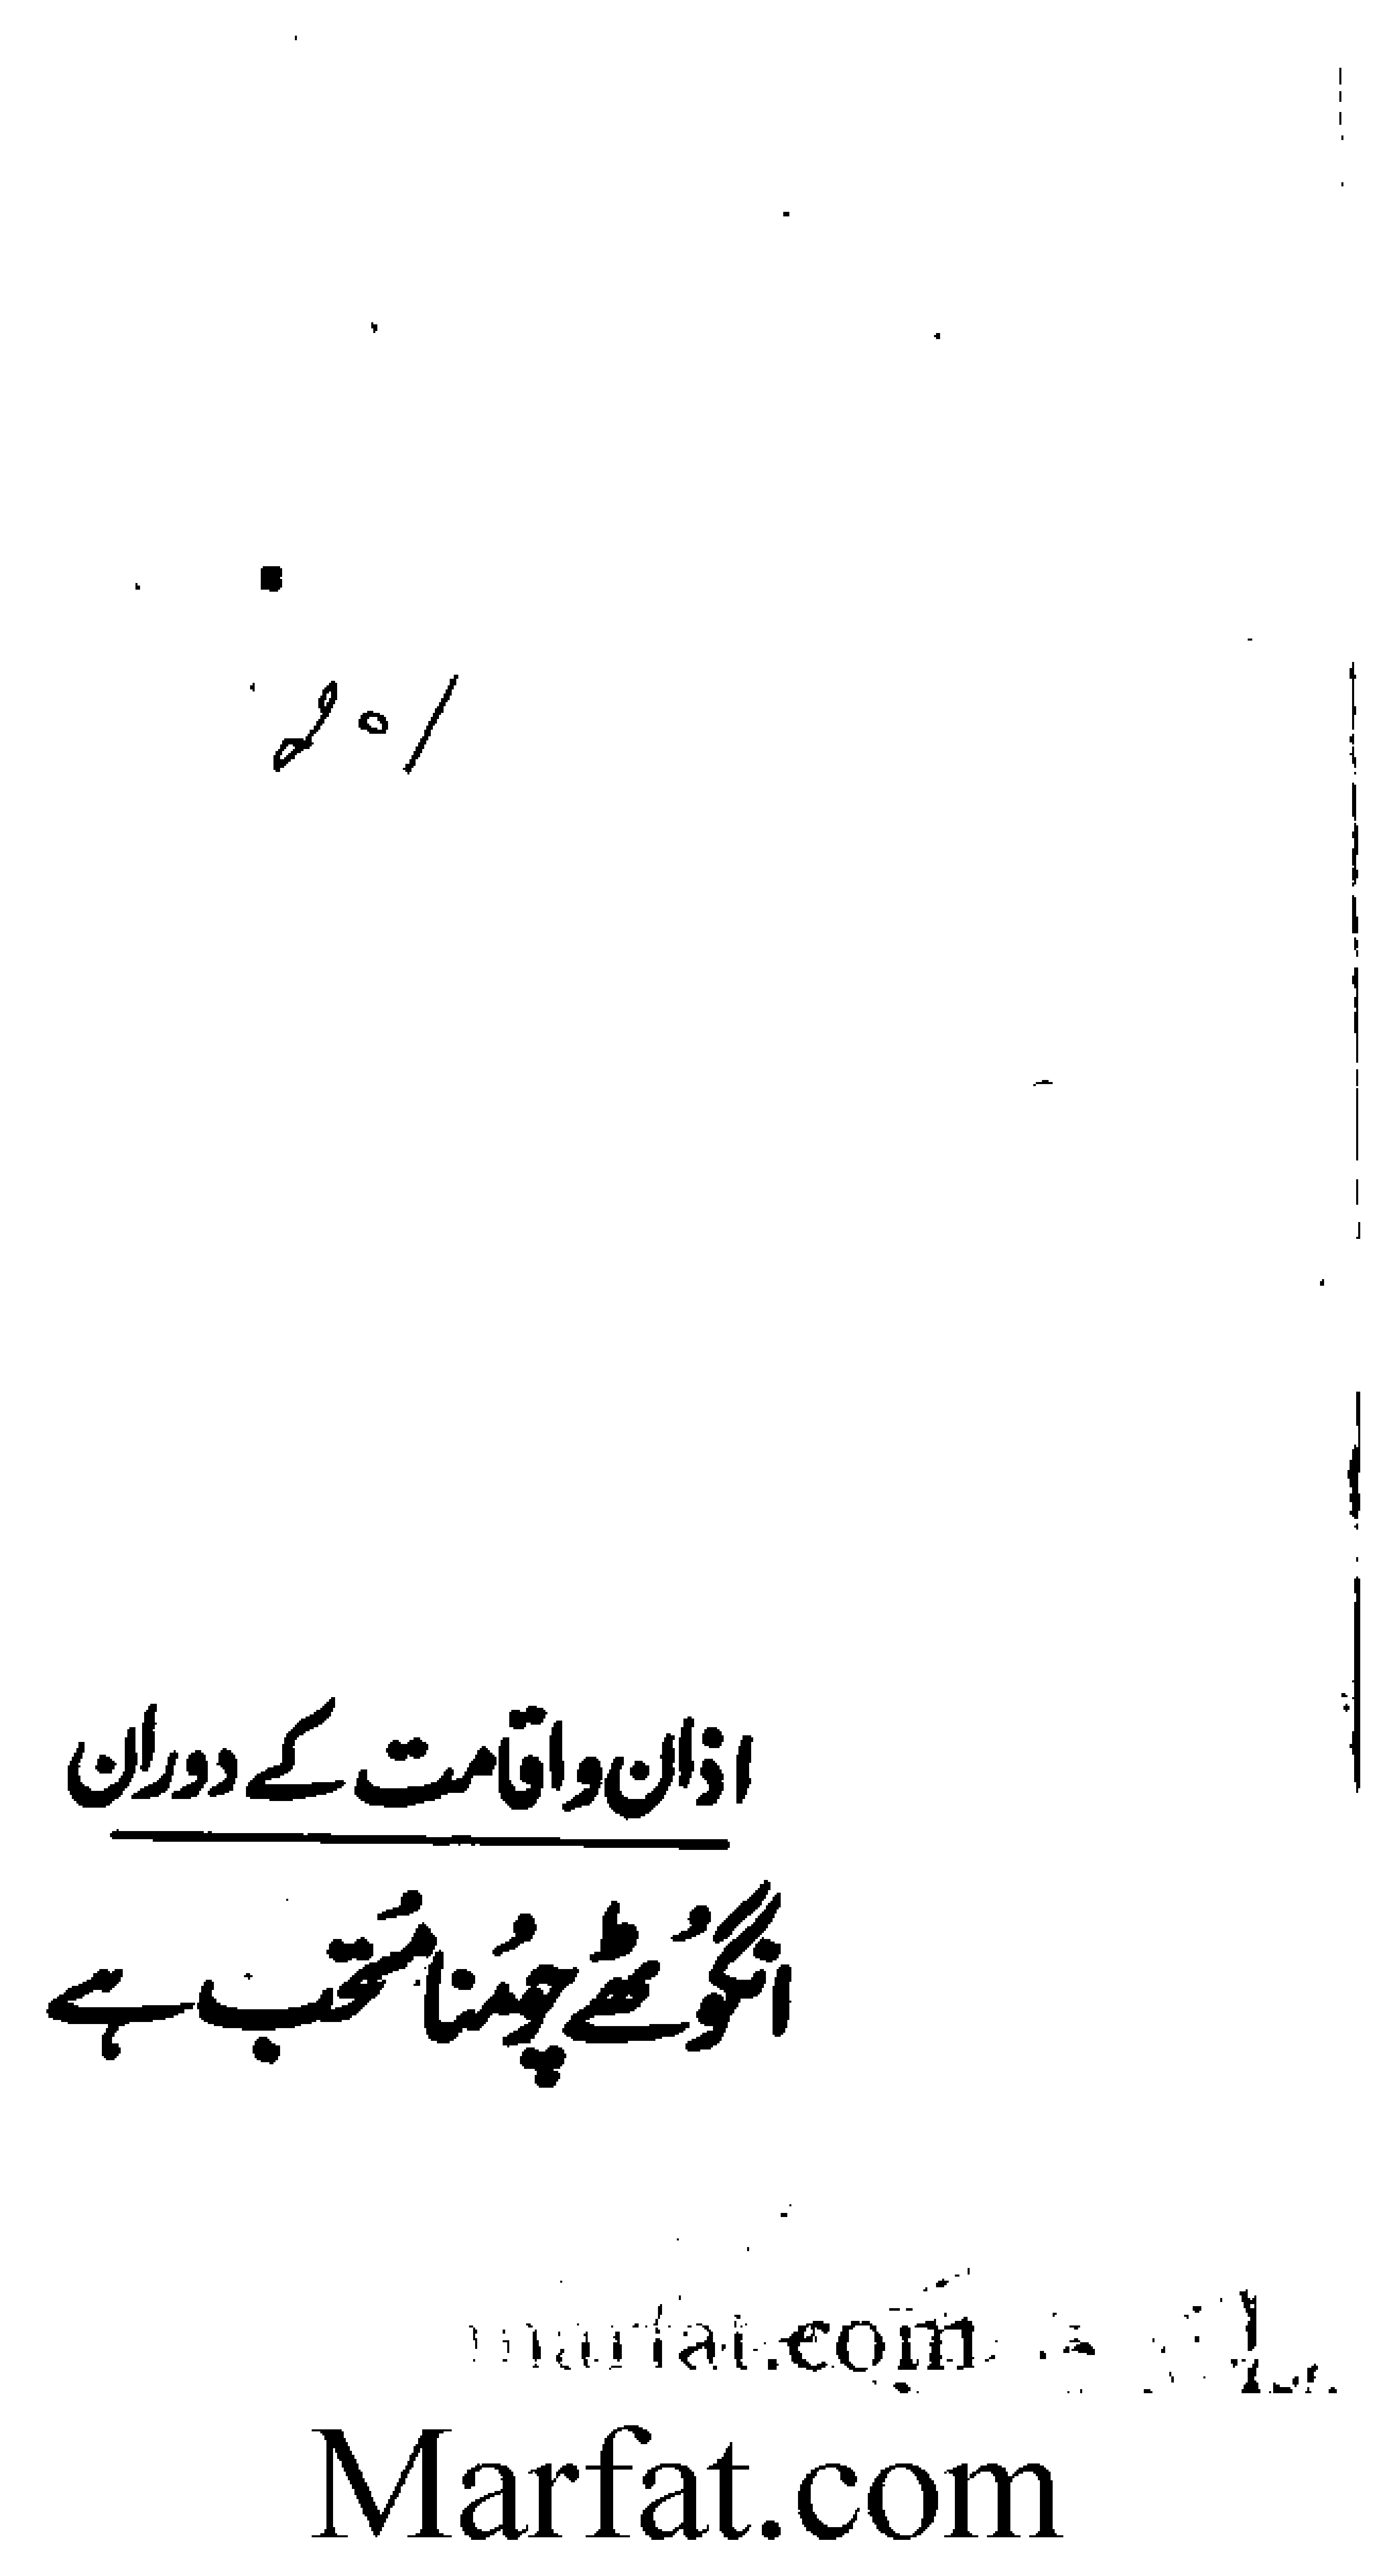 اذان و اقامت کے دوران
انگوُٹھے چوُمنا مُستحب ہے
marfat.com
Marfat.com